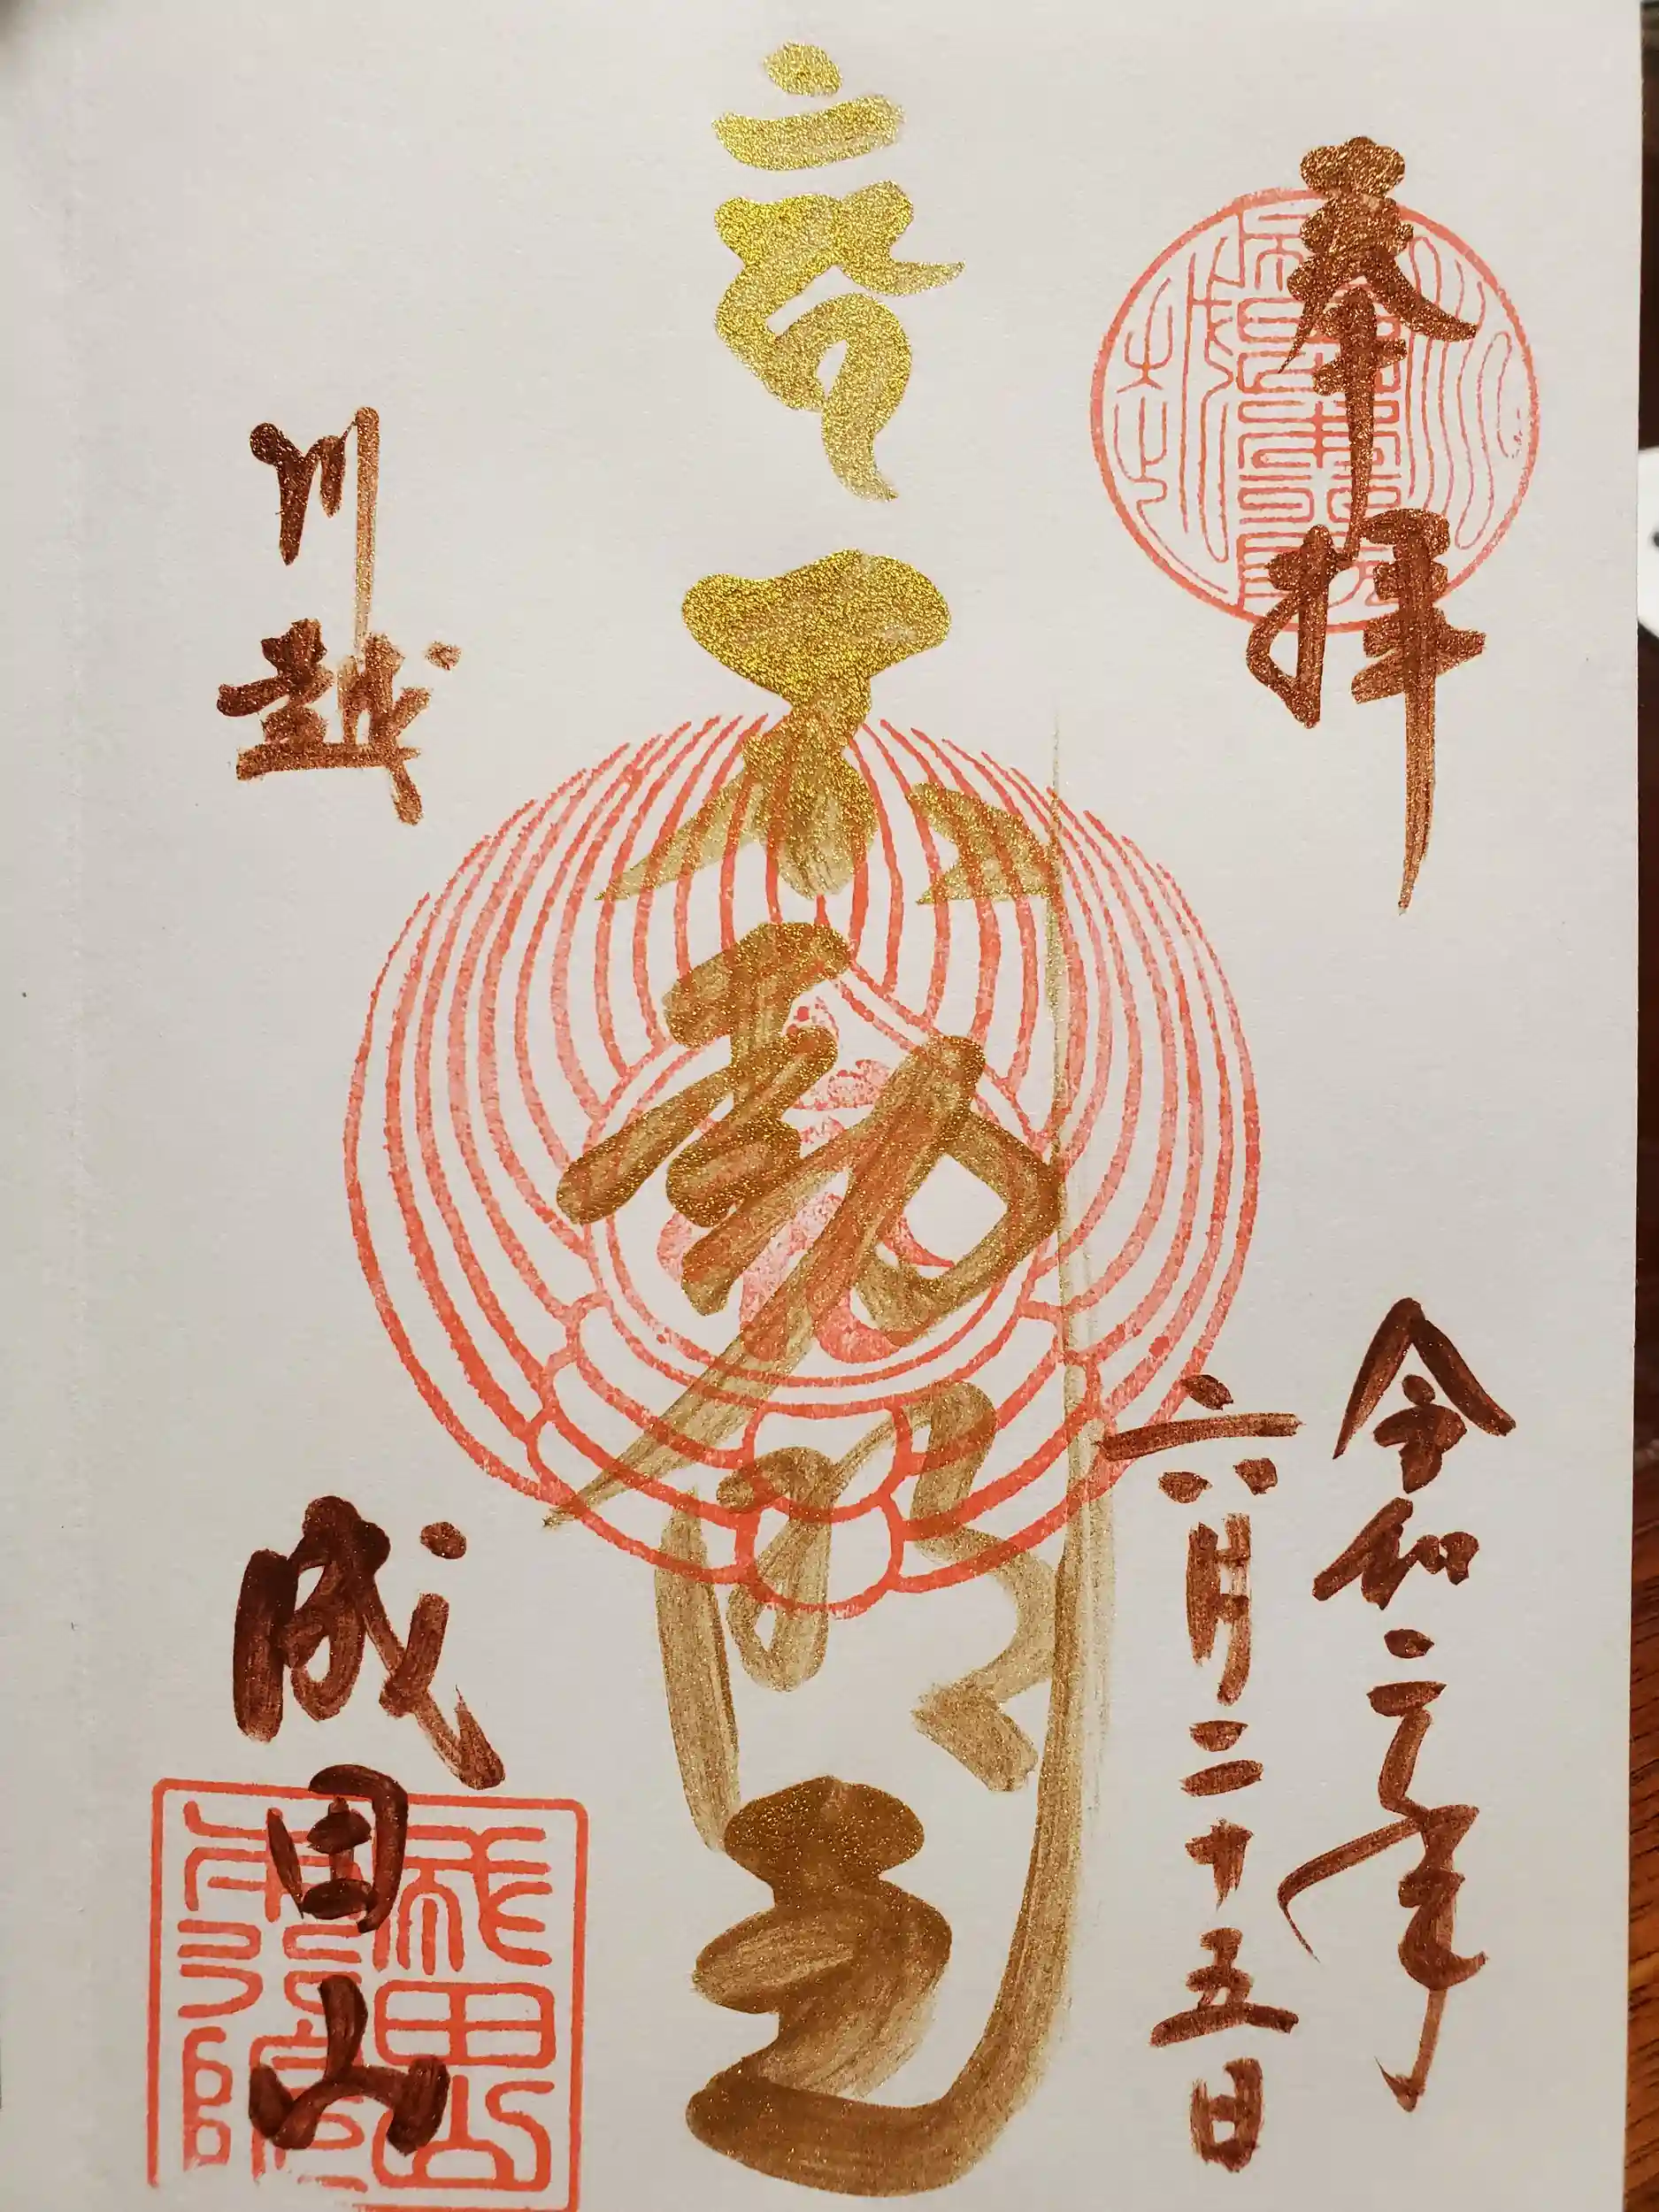 奉拝
令和元年
六月二十五日
不動明王
川越
成田山